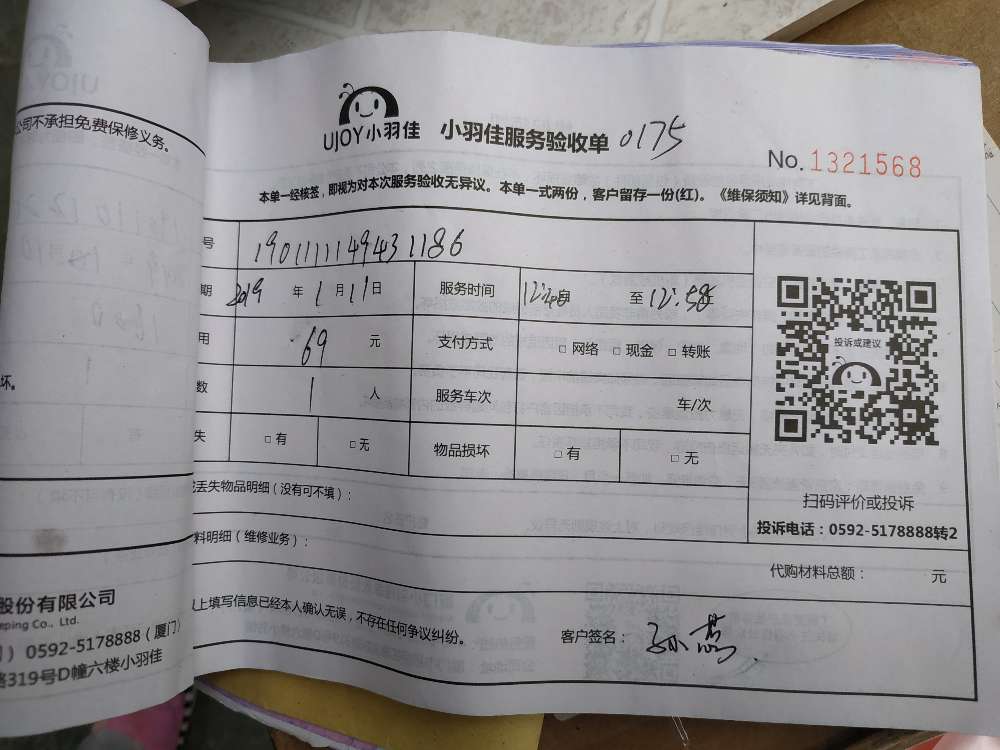 公司不承担免费保修义务。
坏。
股份有限公司
eping Co., Ltd.
0592-5178888（厦门）
路319号D幢六楼小羽佳
UJOY小羽佳 小羽佳服务验收单 0175
No. 1321568
本单一经核签，即视为对本次服务验收无异议。本单一式两份，客户留存一份(红)。《维保须知》详见背面。
号 190111149431186
期 2019 年 1 月 11 日 服务时间 至
用 69 元 支付方式 □ 网络 □ 现金 □ 转账
数 1 人 服务车次 车/次
失 □ 有 □ 无 物品损坏 □ 有 □ 无
投诉或建议
扫码评价或投诉
投诉电话：0592-5178888转2
丢失物品明细（没有可不填）：
料明细（维修业务）：
代购材料总额： 元
上填写信息已经本人确认无误，不存在任何争议纠纷。
客户签名：